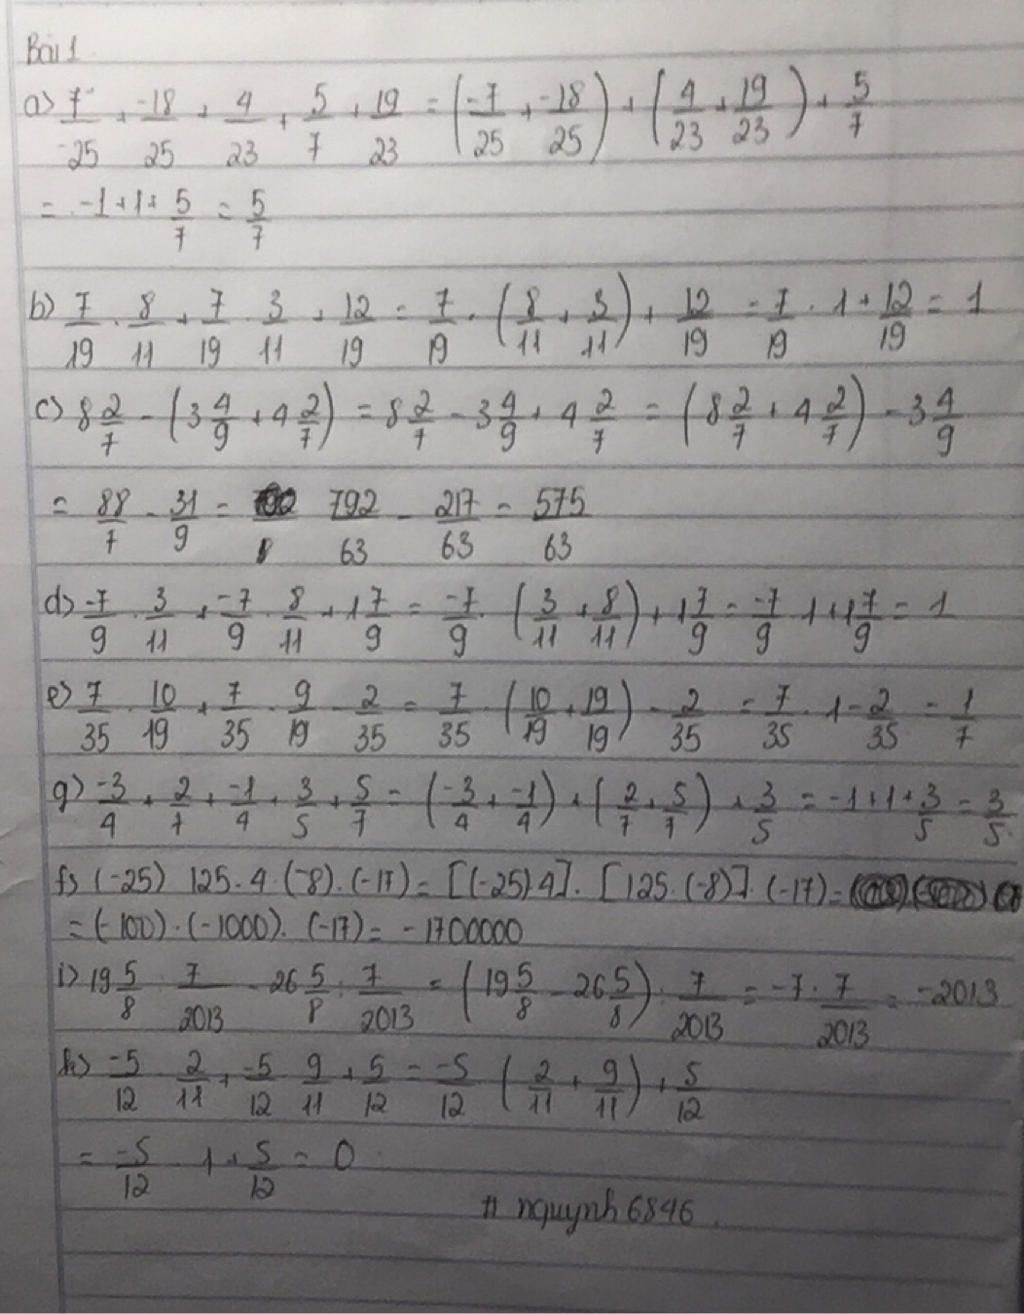 Bài 1
a) 7/-25 + -18/25 + 4/23 + 5/7 + 19/23 = (-7/25 + -18/25) + (4/23 + 19/23) + 5/7
= -1 + 1 + 5/7 = 5/7
b) 7/19 . 8/11 + 7/19 . 3/11 + 12/19 = 7/19 . (8/11 + 3/11) + 12/19 = 7/19 . 1 + 12/19 = 1
c) 8 2/7 - (3 4/9 + 4 2/7) = 8 2/7 - 3 4/9 + 4 2/7 = (8 2/7 + 4 2/7) - 3 4/9
= 88/7 - 31/9 = 792/63 - 217/63 = 575/63
d) -7/9 . 3/11 + -7/9 . 8/11 + 1 7/9 = -7/9 . (3/11 + 8/11) + 1 7/9 = -7/9 . 1 + 1 7/9 = 1
e) 7/35 . 10/19 + 7/35 . 9/19 - 2/35 = 7/35 . (10/19 + 19/19) - 2/35 = 7/35 . 1 - 2/35 = 1/7
g) -3/4 + 2/7 + -1/4 + 3/5 + 5/7 = (-3/4 + -1/4) + (2/7 + 5/7) + 3/5 = -1 + 1 + 3/5 = 3/5
f) (-25) 125 . 4 . (-8) . (-17) = [(-25) 4] . [125 . (-8)] . (-17) =
= (-100) . (-1000) . (-17) = -1700000
i) 19 5/8 . 7/2013 - 26 5/8 . 7/2013 = (19 5/8 - 26 5/8) . 7/2013 = -7 . 7/2013 = -2013
h) -5/12 2/11 + -5/12 9/11 + 5/12 = -5/12 (2/11 + 9/11) + 5/12
= -5/12 1 + 5/12 = 0
# nquynh6846